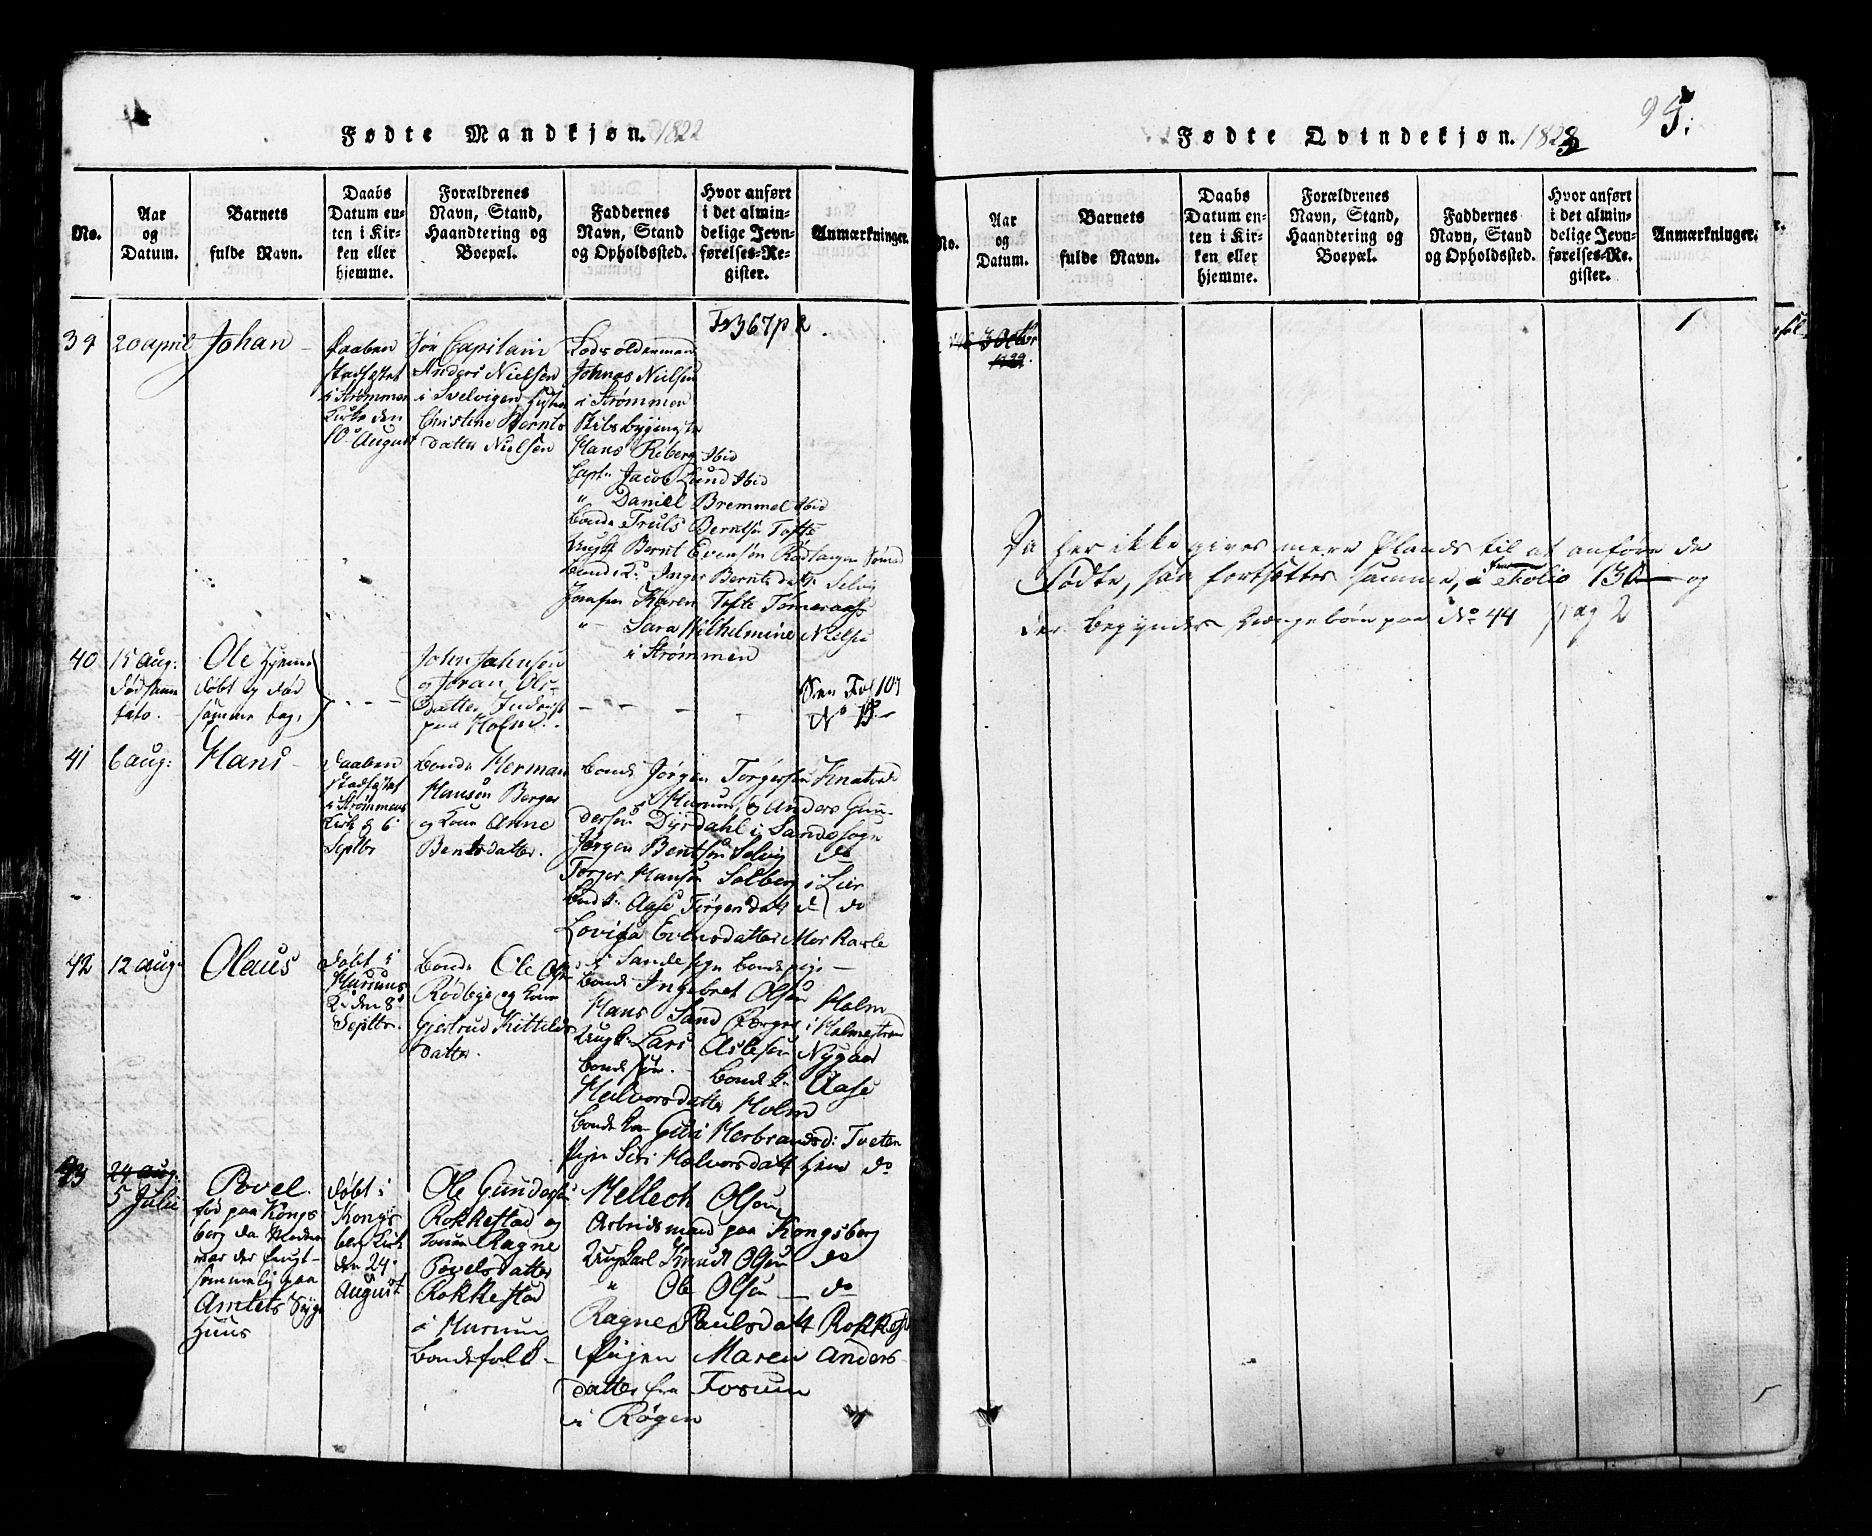 Fødte Mandkjøn. 1822
No.
Aar
og
Datum.
Barnets
fulde Navn.
Daabs
Datum en-
ten i Kir-
ken eller
hjemme.
Forældrenes
Navn, Stand,
Haandtering og
Boepæl.
Faddernes
Navn, Stand
og Opholdssted.
Hvor anført
i det almin-
delige Jevn-
førelses-Re-
gister.
Anmærkninger.
39
20 april
Johan
Daaben
stadfæstet
i Strømmen
Kirke den
10 August
Capitain
Anders Nielsen
i Svelvigen
Christine Bernts
datter Nielsen
Lods oldermand
Johnas Nielsen
i Strømmen
Skibsbygmester
Hans Riberg Ibid
Capt: Jacob Lund Ibid
" Daniel Bremmel Ibid
bonde Truls Berntsen Tofte
Ungk: Bernt Evensen Rødtangen
Inger Bernts datr Selvig
Jomfru Karen Tofte
" Sara Wilhelmine Nielsen
i Strømmen
Fr 367 p 2
40
15 Aug:
død samme
dato.
Ole hjemme
døbt og død
samme dag.
John Johnsen
og Joran Ols-
datter Inderst
paa Holm.
See Fol 109
No 13
41
6 aug:
Hans
Daaben
stadfæstet
i Strømmens
Kirke d 6
Septbr
bonde Herman
Hansen Berger
og kone Anne
Bentsdatter.
bonde Jørgen Torgersen Knatvold
i Hurum, og Anders Gun-
dersen Dyrdahl i Sande sogn
Jørgen Bentsen Selvig do
Torger Hansen Solberg i Lier
bond k: Aase Jørgensdatr do
Lovisa Evensdatter
i Sande sogn bondepige
42
12 aug:
Olaus
døbt i
Hurums
K: den 8
Septbr.
bonde Ole Olsen
Rødbye og kone
Gjertrud Kittils
datter.
bonde Ingebret Olsen Holm
Hans Sand Borger i Holmestrand
Ungk: Lars Aslesen Nygaard
bondesøn.
bonde k: Aase
Halvorsdatter Holm
bonde kone Guri Herbrandsd: Tveten
Pigen Siri Halvorsdatr do
43
24 aug:
5 Julii
Povel.
fød paa Kongs
berg da Moderen
var der frugt-
sommelig paa
Amtets Syge
Huus
døbt i
Kongs
berg Kirke
den 24
August
Ole Gundersen
Rokkestad og
kone Ragne
Povelsdatter
Rokkestad
i Hurum
bondefolk
Kellech Olsen
Arbeidsmand paa Kongsberg
Ungkarl Knudt Olsen do
" Ole Olsen do
Ragne Paulsdatr Rokkestad
Pigen Maren Anders-
datter fra Tosrum
i Røgen
Fødte Qvindekjøn. 1823
95.
No.
Aar
og
Datum.
Barnets
fulde Navn.
Daabs
Datum en-
ten i Kir-
ken eller
hjemme.
Forældrenes
Navn, Stand,
Haandtering og
Boepæl.
Faddernes
Navn, Stand
og Opholdssted.
Hvor anført
i det almin-
delige Jevn-
førelses-Re-
gister.
Anmærkninger.
Da her ikke gives mere Plands til at anføre de
Fødte, saa fortsættes samme, Folio 130 og
der begynder Drengebørn paa No 44 pag 2